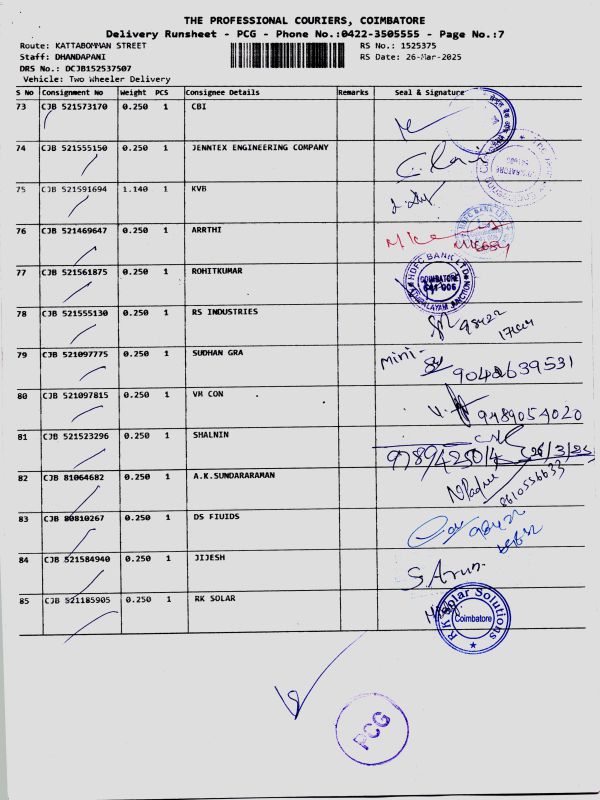 THE PROFESSIONAL COURIERS, COIMBATORE
Delivery Runsheet - PCG - Phone No.:0422-3505555 - Page No.:7
Route: KATTABOMMAN STREET RS No.: 1525375
Staff: DHANDAPANI RS Date: 26-Mar-2025
DRS No.: DCJB152537507
Vehicle: Two Wheeler Delivery
S No Consignment No Weight PCS Consignee Details Remarks Seal & Signature
73 CJB 521573170 0.250 1 CBI
74 CJB 521555150 0.250 1 JENNTEX ENGINEERING COMPANY
75 CJB 521591694 1.140 1 KVB
76 CJB 521469647 0.250 1 ARRTHI
HDFC BANK LTD
77 CJB 521561875 0.250 1 ROHITKUMAR
HDFC BANK LTD
COIMBATORE
641 006
78 CJB 521555130 0.250 1 RS INDUSTRIES
98422
79 CJB 521097775 0.250 1 SUDHAN GRA
Mini-
80 CJB 521097815 0.250 1 VM CON
9489054020
81 CJB 521523296 0.250 1 SHALNIN
26/3/25
82 CJB 81064682 0.250 1 A.K.SUNDARARAMAN
8610556633
83 CJB 80810267 0.250 1 DS FIUIDS
84 CJB 521584940 0.250 1 JIJESH
S Arun
85 CJB 521185905 0.250 1 RK SOLAR
R K Solar Solutions
Coimbatore
PCG